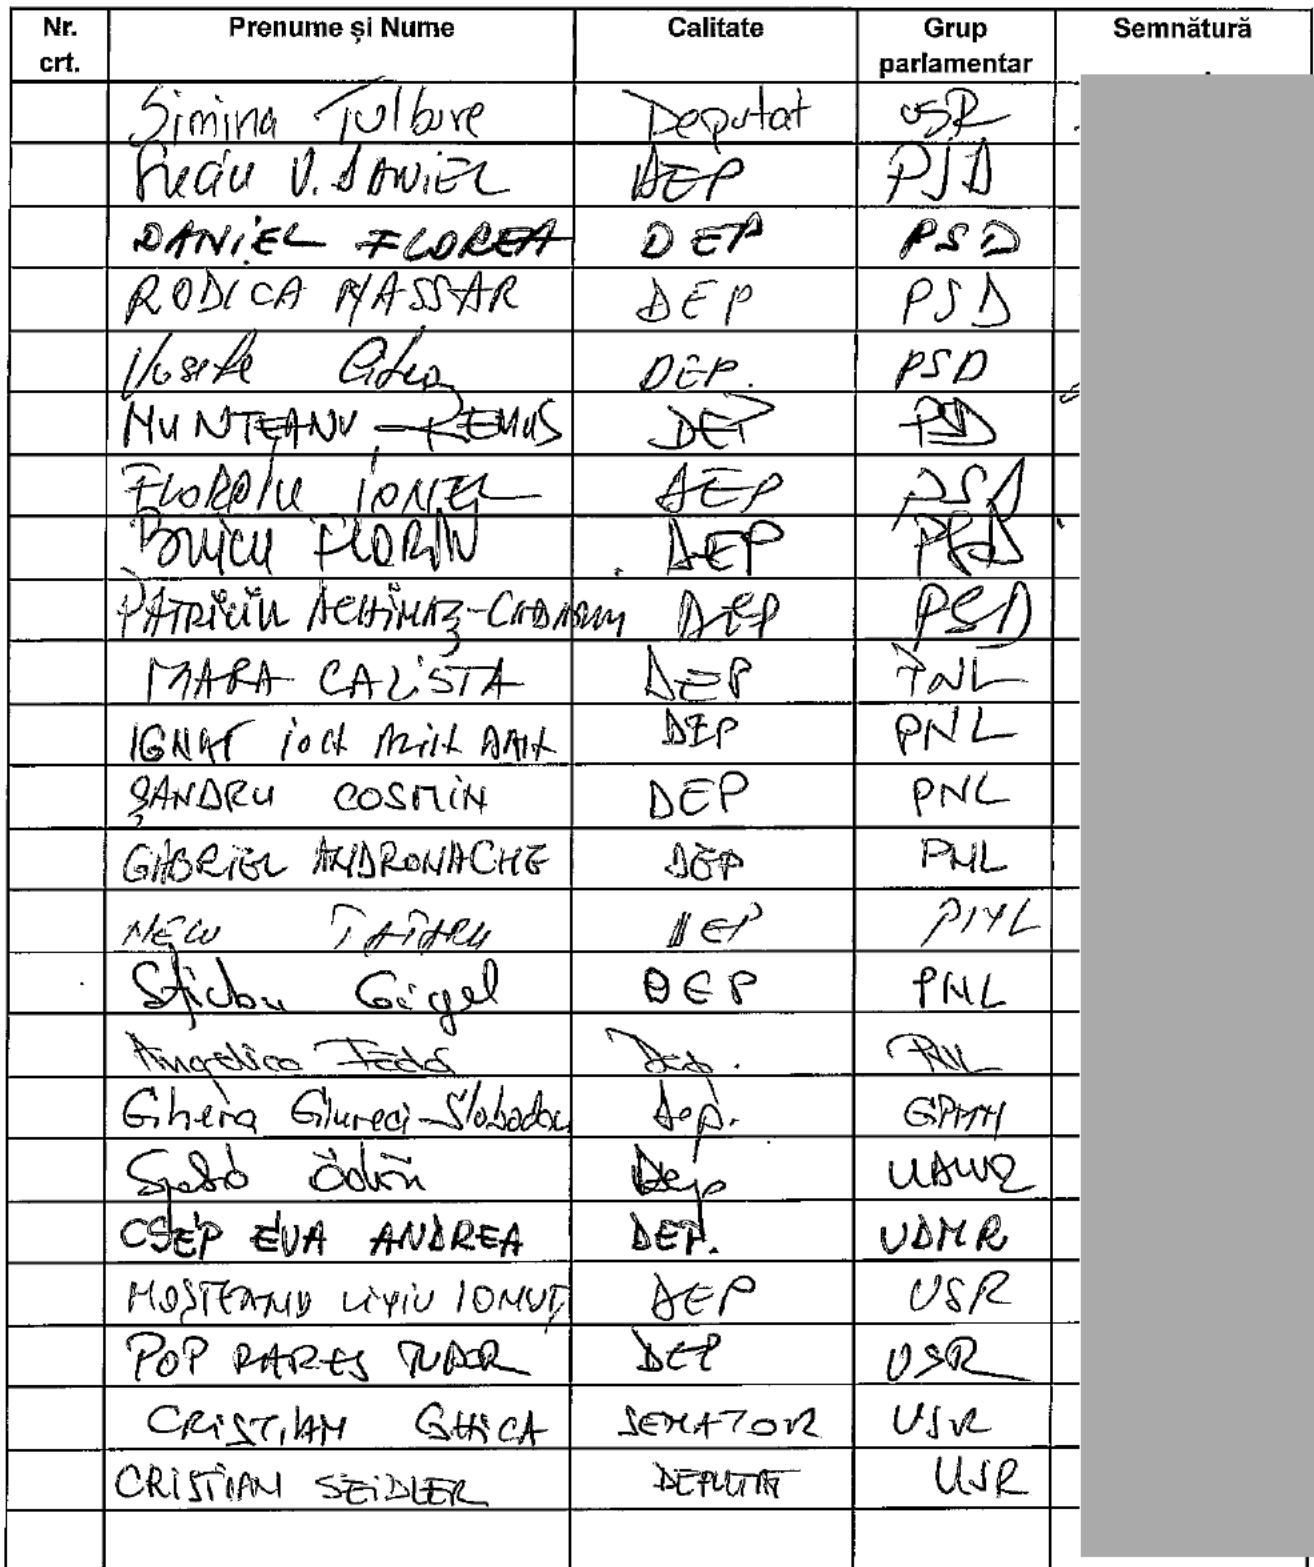 Nr. crt. Prenume și Nume Calitate Grup parlamentar Semnătură
Simina Tulbure Deputat USR
Suciu V. DANIEL DEP PSD
DANIEL FLOREA DEP PSD
RODICA NASSAR DEP PSD
DEP. PSD
MUNTEANU REMUS DEP PSD
IONEL DEP PSD
BUICU FLORIN DEP PSD
PATRICIU ACHIMAȘ-CADARIU DEP PSD
MARA CALISTA DEP PNL
IGNAT DEP PNL
ȘANDRU COSMIN DEP PNL
GABRIEL ANDRONACHE DEP PNL
NELU TĂTARU DEP PNL
Știrbu Gigel DEP PNL
Angelica Fădor Dep. PNL
Ghera Giureci-Slobodan Dep. GPMN
Szabó Ödön Dep UDMR
CSÉP ÉVA ANDREA DEP. UDMR
MOȘTEANU LIVIU IONUȚ DEP USR
POP RAREȘ TUDOR DEP USR
CRISTIAN GHICA SENATOR USR
CRISTIAN SEIDLER DEPUTAT USR